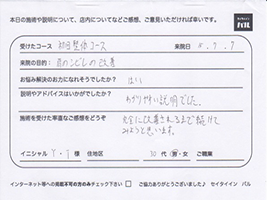 本日の施術や説明について、店内についてなどご感想、ご意見いただければ幸いです。
セイタイイン
バル
受けたコース 初回整体コース 来院日 5.7.7
来院の目的： 肩のこじしの改善
お悩み解決のお力になれそうでしたか？ はい
説明やアドバイスはいかがでしたか？
わかりやすい説明でした。
施術を受けた率直なご感想をどうぞ
完全に改善されるまで続けて
みようと思います。
イニシャル Y・T 様 住地区 30代 男・女 ご職業
インターネット等への掲載不可の方のみチェック下さい ご協力ありがとうございました♪ セイタイイン バル